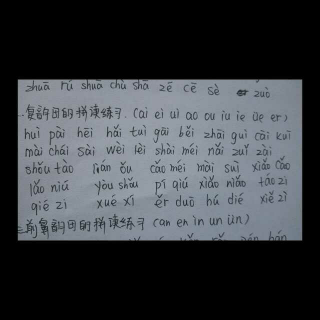 zhuā rú shuā chū shā zē cē sè zuò
复韵母的拼读练习. (ai ei ui ao ou iu ie üe er)
huì pāi hēi hǎi tuì gāi běi zhāi guì cāi kuī
mài chái sài wèi lèi shài méi nǎi zuǐ zāi
shǒu tào lián ǒu cǎo méi mài suì xiǎo cǎo
lǎo niú yòu shǒu pí qiú xiǎo niǎo táo zi
qié zi xué xí ěr duō hú dié xiē zi
前鼻韵母的拼读练习 (an en in un ün)